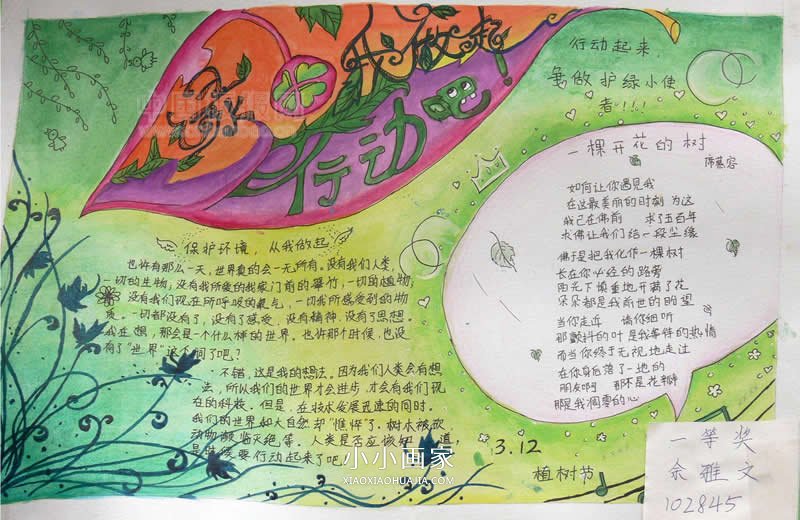 从我做起
行动吧!
行动起来,
争做护绿小使
者"!!!
一棵开花的树
席慕容
如何让你遇见我
在这最美丽的时刻 为这
我已在佛前 求了五百年
求佛让我们结一段尘缘
佛于是把我化作一棵树
长在你必经的路旁
阳光下慎重地开满了花
朵朵都是我前世的盼望
当你走近 请你细听
那颤抖的叶是我等待的热情
而当你终于无视地走过
在你身后落了一地的
朋友啊 那不是花瓣
那是我凋零的心
保护环境,从我做起
也许有那么一天,世界真的会一无所有。没有我们人类,
一切的生物;没有我所爱的我家门前的翠竹,一切的植物;
没有我们现在所呼吸的氧气,一切我所感受到的物
质。一切都没有了,没有了感受,没有精神,没有了思想。
我在想,那会是一个什么样的世界。也许那个时候,也没
有了"世界"这个词了吧?
不错,这是我的想法。因为我们人类会有想
法,所以我们的世界才会进步,才会有我们现
在的科技。但是,在技术发展迅速的同时,
我们的世界和大自然却"憔悴"了。树木被砍
动物濒临灭绝等。人类是否应该知道,
是时候要行动起来了吧
3.12
植树节
一等奖
余雅文
102845
小小画家
XIAOXIAOHUAJIA.COM